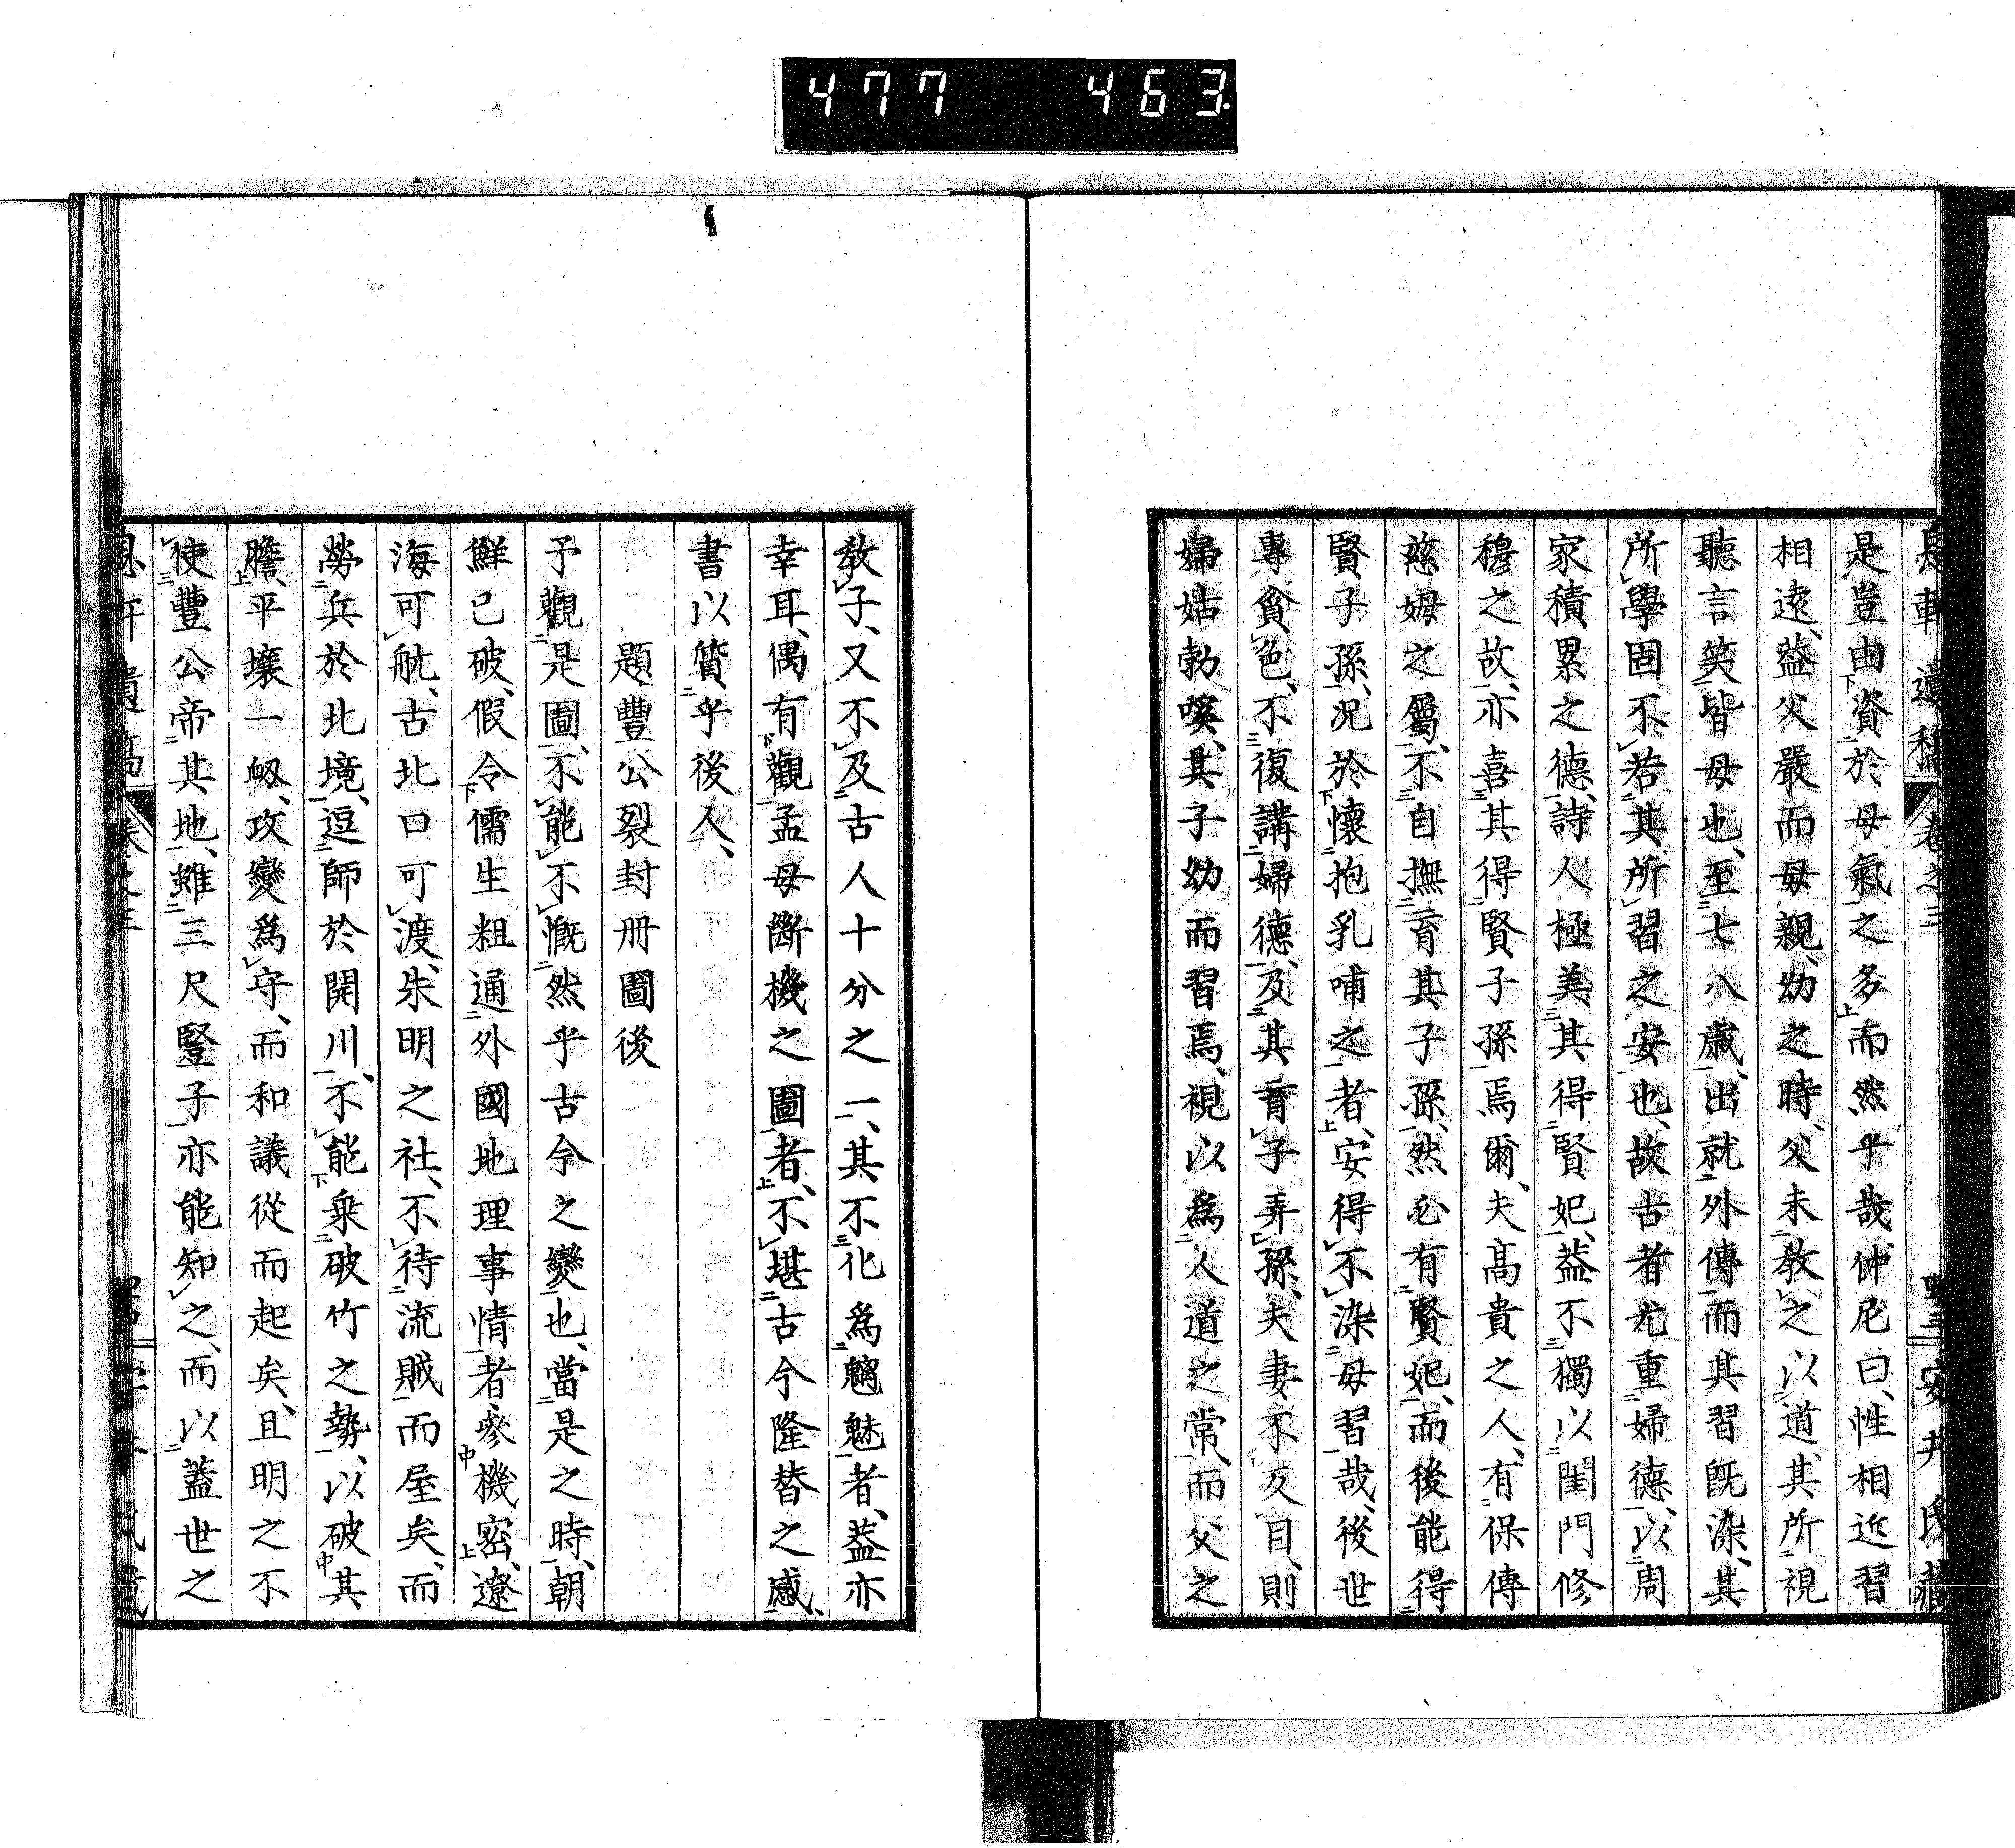 477 463
息軒遺稿 卷之三 安井氏藏
是豈由資於母氣之多而然乎哉、仲尼曰、性相近習
相遠、蓋父嚴而母親、幼之時、父未敎之以道、其所視
聽言笑皆母也、至七八歲、出就外傅、而其習既染、其
所學固不若其所習之安也、故古者尤重婦德、以周
家積累之德、詩人極美其得賢妃、蓋不獨以閨門修
穆之故、亦喜其得賢子孫焉爾、夫高貴之人、有保傅
慈姆之屬、不自撫育其子孫、然必有賢妃、而後能得
賢子孫、況於懷抱乳哺之者、安得不染母習哉、後世
專貪色、不復講婦德、及其育子弄孫、夫妻不反目、則
婦姑勃嗘、其子幼而習焉、視以為人道之常、而父之
敎子、又不及古人十分之一、其不化為魑魅者、蓋亦
幸耳、偶有觀孟母斷機之圖者、不堪古今隆替之感、
書以質乎後人、
題豐公裂封冊圖後
予觀是圖、不能不慨然乎古今之變也、當是之時、朝
鮮已破、假令儒生粗通外國地理事情者、參機密、遼
海可航、古北口可渡、朱明之社、不待流賊而屋矣、而
勞兵於北境、逗師於開川、不能乘破竹之勢、以破其
膽、平壤一衂、攻變為守、而和議從而起矣、且明之不
使豐公帝其地、雖三尺豎子亦能知之、而以蓋世之